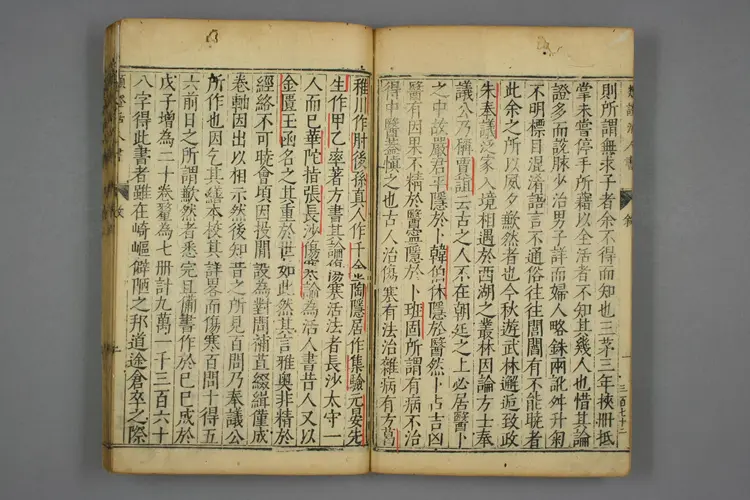 則所謂無求子者余不得而知也三茅三年挾冊抵
掌未嘗停手所藉以全活者不知其幾人也惜其論
證多而設脉少治男子詳而婦人略銖兩訛舛升䪥
不明標目混淆語言不通俗往往閭閻有不能曉者
此余之所以夙夕歉然者也今秋遊武林邂逅致政
朱奉議泛家入境相遇於西湖之叢林因論方士奉
議公乃稱賈誼云古之人不在朝廷之上必居醫卜
之中故嚴君平隱於卜韓伯休隱於醫然卜占吉凶
醫有因果不精於醫寧隱於卜班固所謂有病不治
得中醫蓋慎之也古人治傷寒有法治雜病有方葛
稚川作肘後孫真人作千金陶隱居作集驗元晏先
生作甲乙率著方書其論傷寒活法者長沙太守一
人而已華陀指張長沙傷寒論為活人書昔人又以
金匱玉函名之其重於世如此然其言雅奧非精於
經絡不可曉會頃因投閒設為對問補苴綴緝僅成
卷軸因出以相示然後知昔之所見百問乃奉議公
所作也因乞其繕本校其詳畧而傷寒百問十得五
六前日之所謂歉然者悉完且備書作於己巳成於
戊子增為二十卷釐為七册計九萬一千三百六十
八字得此書者雖在崎嶇僻陋之邦道途倉卒之際